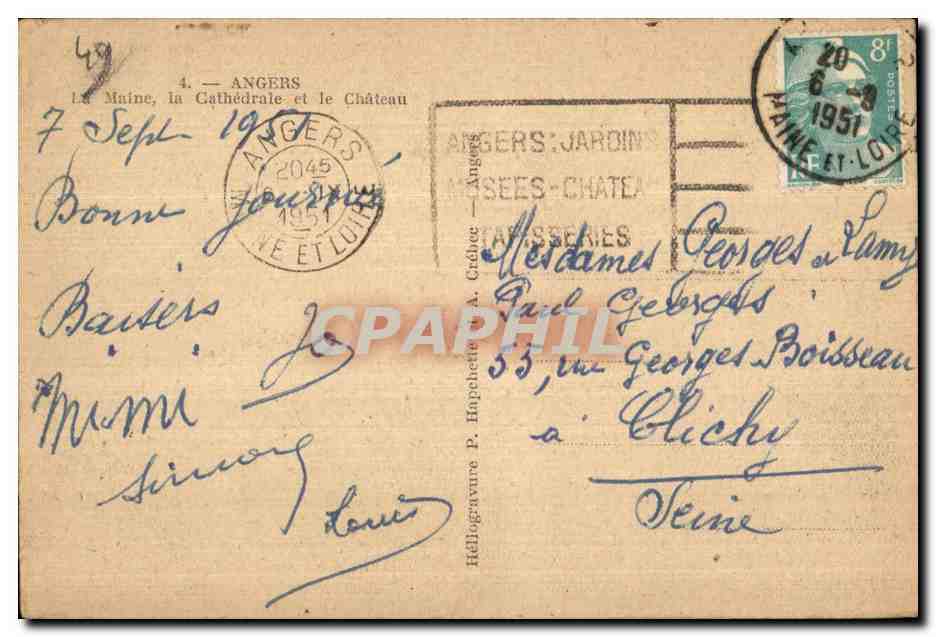 49
4. — ANGERS
La Maine, la Cathédrale et le Château
7 Sept 1951
Bonne Journée
Baisers
Jo
Mimi
Simone
Louis
ANGERS
2045
1951
NE ET LOIRE
ANGERS: JARDINS
MUSEES-CHATEA
TAPISSERIES
8F
POSTES
RF
20
6 -9
1951
MAINE-ET-LOIRE
Héliogravure P. Hapchette & A. Crébec — Angers
Mesdames Georges & Lamy
Paul Georges
55, rue Georges Boisseau
à Clichy
Seine
CPAPHIL